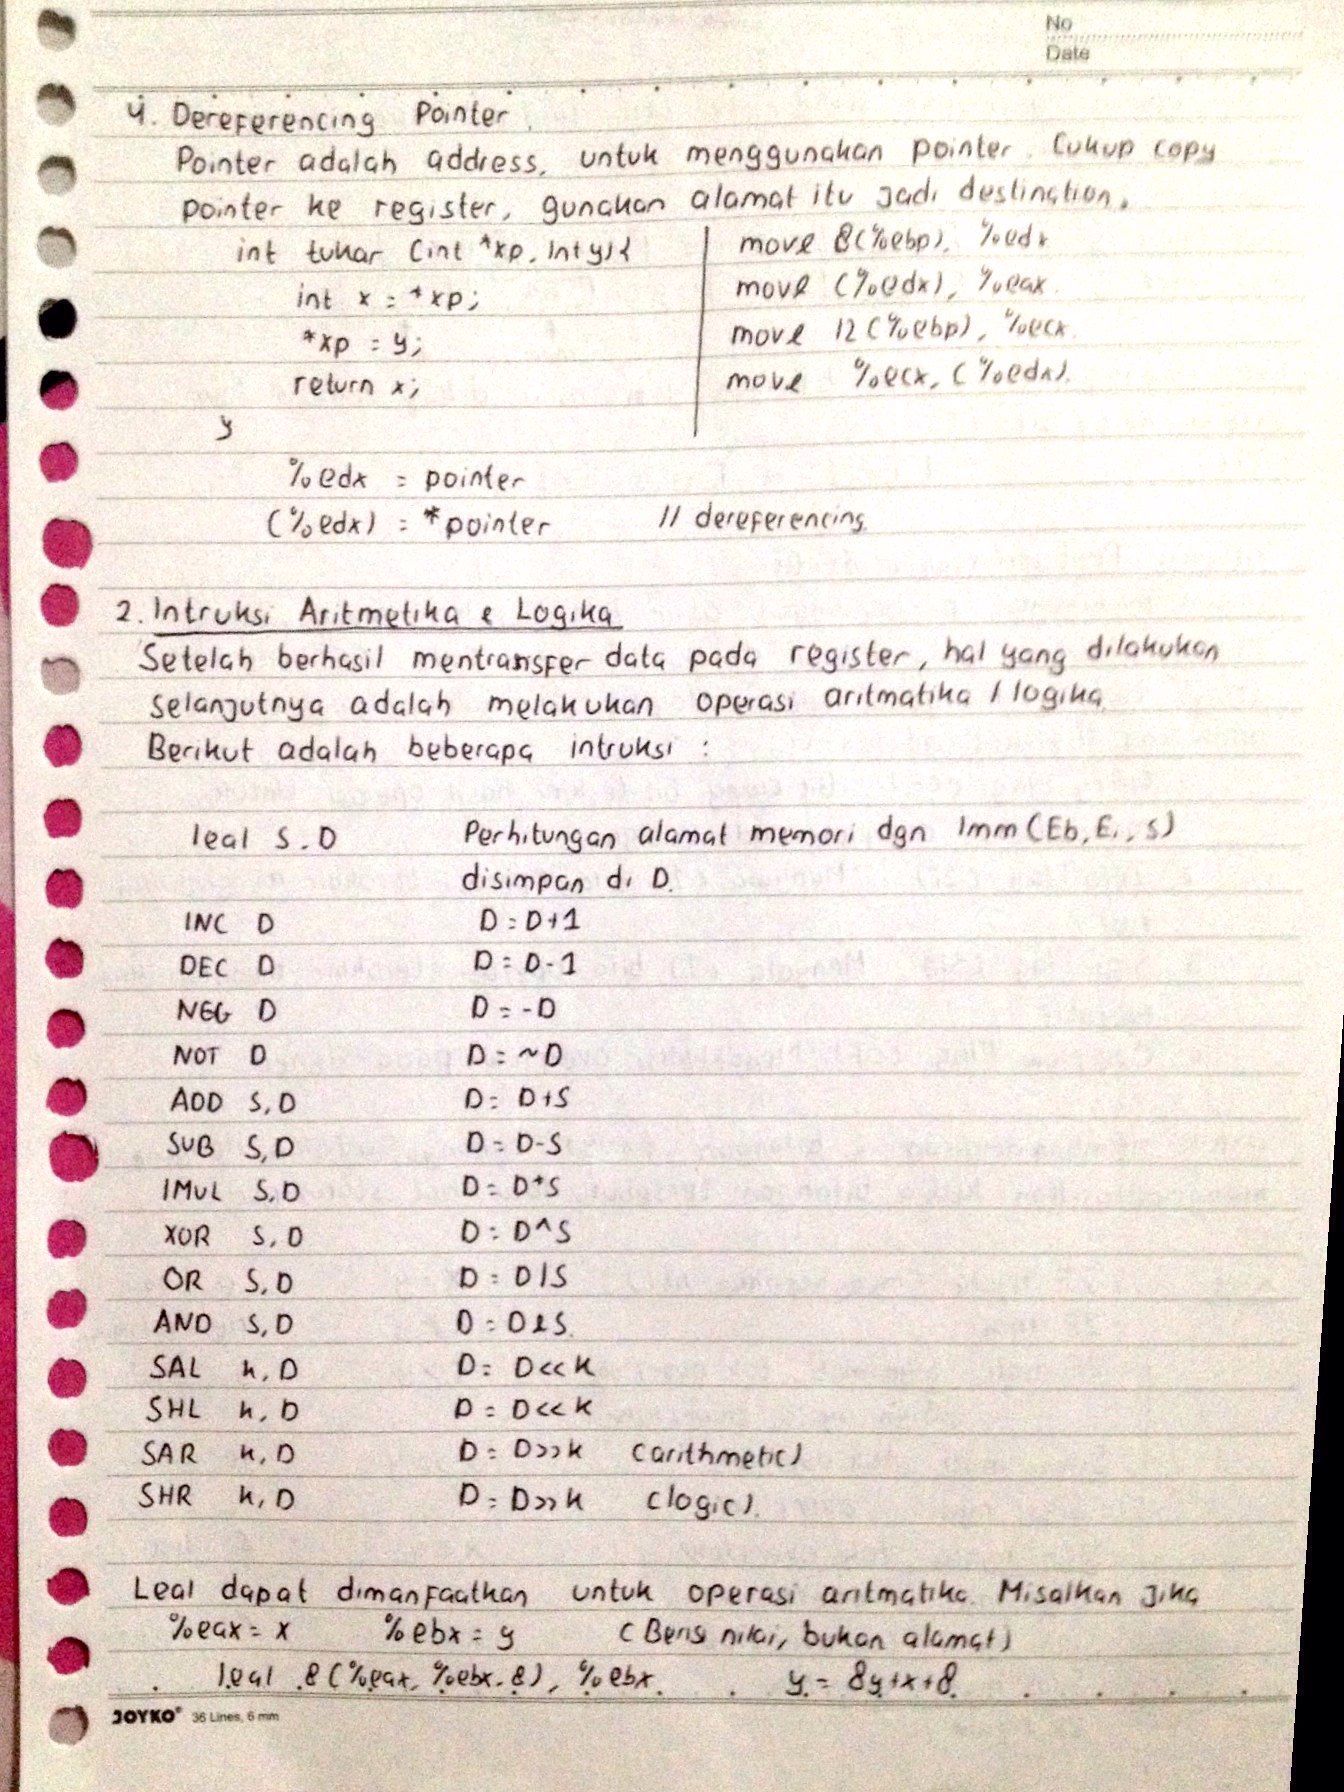 No
Date
4. Dereferencing Pointer.
Pointer adalah address, untuk menggunakan pointer. Cukup copy
pointer ke register, gunakan alamat itu jadi destination.
int tukar (int *xp, int y){
int x = *xp;
*xp = y;
return x;
}
movl 8(%ebp), %edx
movl (%edx), %eax.
movl 12(%ebp), %ecx.
movl %ecx, (%edx).
%edx = pointer
(%edx) = *pointer // dereferencing.
2. Intruksi Aritmetika & Logika
Setelah berhasil mentransfer data pada register, hal yang dilakukan
selanjutnya adalah melakukan operasi aritmatika / logika.
Berikut adalah beberapa intruksi :
leal S, D Perhitungan alamat memori dgn Imm(Eb, Ei, s)
disimpan di D.
INC D D = D+1
DEC D D = D-1
NEG D D = -D
NOT D D = ~D
ADD S, D D = D+S
SUB S, D D = D-S
IMUL S, D D = D*S
XOR S, D D = D^S
OR S, D D = D|S
AND S, D D = D&S.
SAL k, D D = D<<k
SHL k, D D = D<<k
SAR k, D D = D>>k (arithmetic)
SHR k, D D = D>>k (logic).
Leal dapat dimanfaatkan untuk operasi aritmatika. Misalkan jika
%eax = x %ebx = y (Berisi nilai, bukan alamat)
leal 8(%eax, %ebx, 8), %ebx. y = 8y+x+8.
JOYKO® 36 Lines, 6 mm